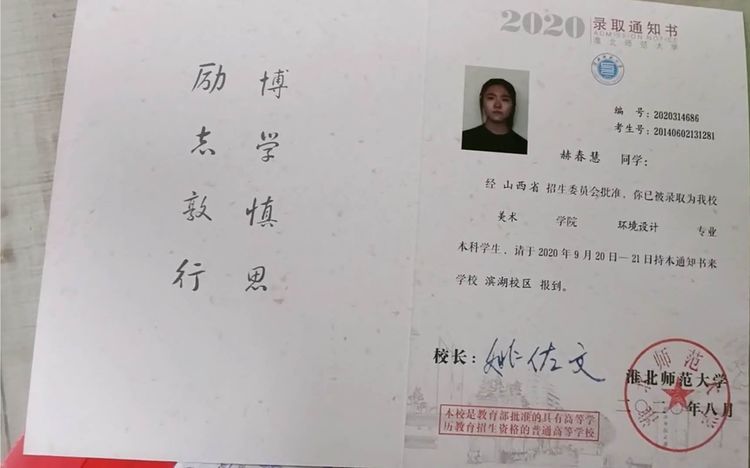 博学慎思
励志敦行
2020 录取通知书
ADMISSION NOTICE
淮北师范大学
编 号:2020314686
考生号:20140602131281
赫春慧 同学:
经 山西省 招生委员会批准,你已被录取为我校
美术 学院 环境设计 专业
本科学生,请于2020年9月20日—21日持本通知书来
学校 滨湖校区 报到。
校长: 姚佐文
淮北师范大学
二〇二〇年八月
本校是教育部批准的具有高等学
历教育招生资格的普通高等学校